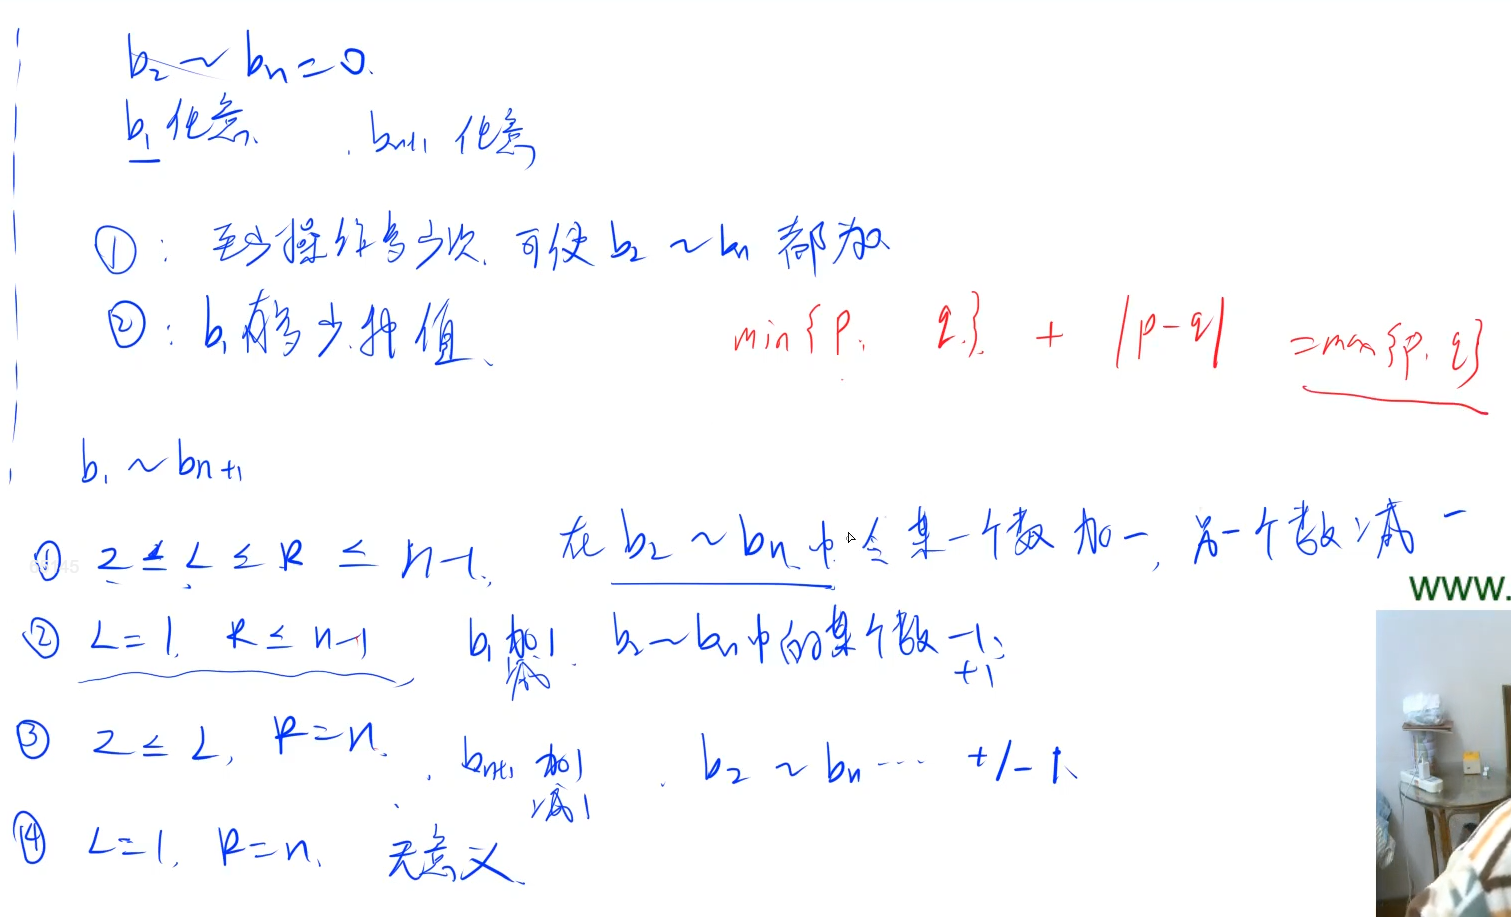 b₂ ~ bₙ = 0.
b₁ 任意. . bₙ₊₁ 任意
①: 至少操作多少次. 可使 b₂ ~ bₙ 都为0
②: b₁ 有多少种值、 min{p, q}. + |p-q| = max{p, q}
b₁ ~ bₙ₊₁
① 2 ≤ L ≤ R ≤ n-1. 在 b₂ ~ bₙ 中 令某一个数加一, 另一个数减一
WWW.
② L=1. R ≤ n-1 b₁ 加1. b₂ ~ bₙ 中的某个数 -1;
减 +1
③ 2 ≤ L, R=n. . bₙ₊₁ 加1 . b₂ ~ bₙ ... +/- 1、
减1
④ L=1. R=n. 无意义.